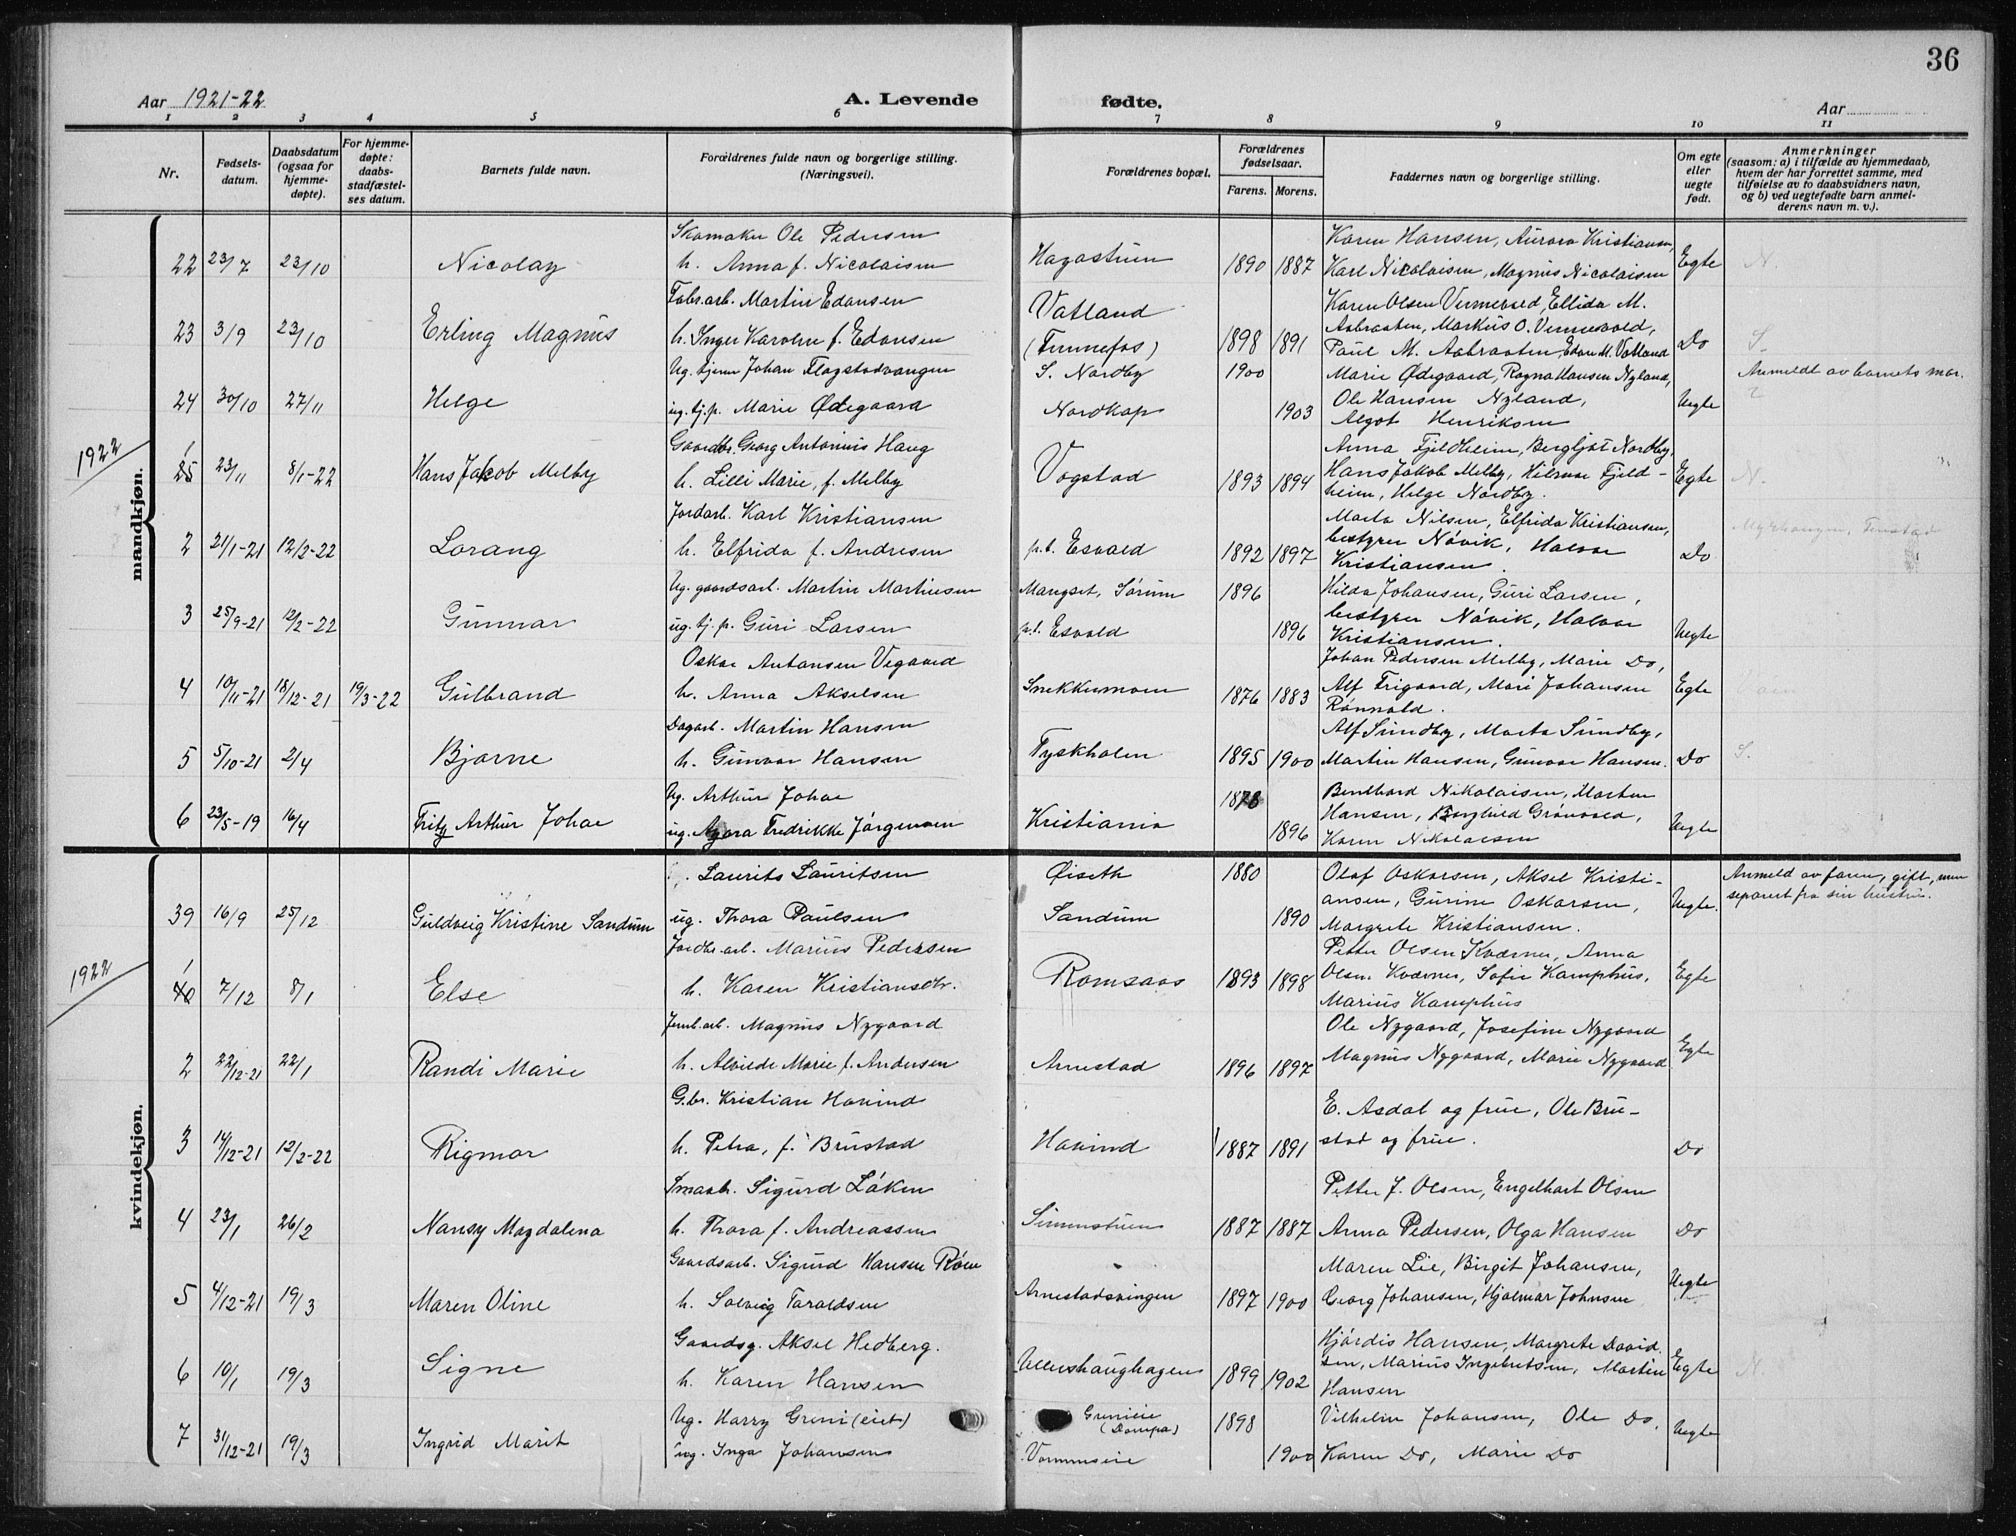 36
Aar 1921-22 A. Levende fødte. Aar
1 2 3 4 5 6 7 8 9 10 11
Nr. Fødsels-datum. Daabsdatum (ogsaa for hjemme-døpte). For hjemme-døpte: daabs-stadfæstel-ses datum. Barnets fulde navn. Forældrenes fulde navn og borgerlige stilling. (Næringsvei). Forældrenes bopæl. Forældrenes fødselsaar. Farens. Morens. Faddernes navn og borgerlige stilling. Om egte eller uegte født. Anmerkninger (saasom: a) i tilfælde av hjemmedaab, hvem der har forrettet samme, med tilføielse av to daabsvidners navn, og b) ved uegtefødte barn anmel-derens navn m. v.).
mandkjøn.
Skomaker Ole Pedersen Karen Hansen, Aurora Kristiansen,
22 23/7 23/10 Nicolay h. Anna f. Nicolaisen Hagastuen 1890 1887 Karl Nicolaisen, Magnus Nicolaisen Egte N.
Fabr.arb. Martin Edansen Vatland Karen Olsen Vennevold, Ellida M.
23 3/9 23/10 Erling Magnus h. Inger Karoline f. Edansen (Funnefos) 1898 1891 Aabraaten, Markus O. Vennevold, Do S.
Paul M. Aabraaten, Edan M. Vatland
Ug. tjener Johan Flagstadvangen S. Nordby 1900 Marie Ødegaard, Ragna Hansen Nyland, Anmeldt av barnets mor.
24 30/10 27/11 Helge ug. tj.p. Marie Ødegaard Nordkap 1903 Ole Hansen Nyland, Uegte
Algot Henriksen
1922
Gaardbr. Georg Antonius Haug Anna Fjeldheim, Bergljot Nordby,
1 25 23/11 8/1-22 Hans Jakob Melby h. Lilli Marie, f. Melby Vogstad 1893 1894 Hans Jakob Melby, Hilmar Fjeld- Egte N.
heim, Helge Nordby.
Jordarb. Karl Kristiansen Marta Nilsen, Elfrida Kristiansen,
2 21/1-21 12/2-22 Lorang h. Elfrida f. Andresen p.t. Esvald 1892 1897 bestyrer Nóvik, Halvor Do
Kristiansen.
Ug. gaardsarb. Martin Martinsen Mangset, Sørum 1896 Hilda Johansen, Guri Larsen,
3 25/9-21 12/2-22 Gunnar ug. tj. p. Guri Larsen p.t. Esvald 1896 bestyrer Nóvik, Halvor Uegte
Kristiansen.
Oskar Antonsen Vegaard Johan Pedersen Melby, Marie Do,
4 10/11-21 18/12-21 19/3-22 Gulbrand h. Anna Akselsen Snekkermoen 1876 1883 Alf Frigaard, Mari Johansen Egte
Rønnold.
Dagarb. Martin Hansen Alf Sundby, Marta Sundby,
5 5/10-21 2/4 Bjarne h. Gunvor Hansen Tyskholen 1895 1900 Martin Hansen, Gunvor Hansen. Do S.
Ug. Arthur Johae Bernhard Nikolaisen, Marten
6 23/5-19 16/4 Fritz Arthur Johae ug. Agora Fredrikke Jørgensen Kristiania 1896 Hansen, Borghild Grønvold, Uegte
Karen Nikolaisen
kvindekjøn.
Laurits Lauritsen Øiseth 1880 Olaf Oskarsen, Aksel Kristi- Anmeld av faren, gift, men
39 16/9 25/12 Guldveig Kristine Sandum ug. Thora Paulsen Sandum 1890 ansen, Gurine Oskarsen, Uegte. separert fra sin hustru.
Margrete Kristiansen.
1922
Jordbr.arb. Marius Pedersen Petter Olsen Kværner, Anna
1 40 7/12 8/1 Else h. Karen Kristiansdtr. Romsaas 1893 1898 Olsen Kværner, Sofie Kamphus, Egte
Marius Kamphus
Jernb.arb. Magnus Nygaard Ole Nygaard, Josefine Nygaard
2 22/12-21 22/1 Randi Marie h. Alvilde Marie f. Andersen Arnestad 1896 1897 Magnus Nygaard, Marie Nygaard Egte
G.br. Kristian Hovind E. Asdal og frue, Ole Bru-
3 14/12-21 12/2-22 Rigmor h. Petra, f. Brustad Hovind 1887 1891 stad og frue. Do
Smaabr. Sigurd Løken Petter J. Olsen, Engelhart Olsen
4 23/1 26/2 Nansy Magdalena h. Thora f. Andreassen Simenstuen 1887 1887 Anna Pedersen, Olga Hansen Do
Gaardsarb. Sigurd Hansen Røen Maren Lie, Birgit Johansen,
5 4/12-21 19/3 Maren Oline h. Solveig Taraldsen Arnestadsvingen 1897 1900 Georg Johansen, Hjalmar Johnsen Uegte
Gaardsg. Aksel Hedberg. Hjørdis Hansen, Margrete David-
6 10/1 19/3 Signe h. Karen Hansen Ullershaughagen 1899 1902 sen, Marius Ingebretsen, Martin Egte N.
Hansen
Ug. Harry Greni (eiet) Grenieie (Dampa) 1898 Vilhelm Johansen, Ole Do,
7 31/12-21 19/3 Ingrid Marit ug. Inga Johansen Vormmseie 1900 Karen Do, Marie Do Uegte